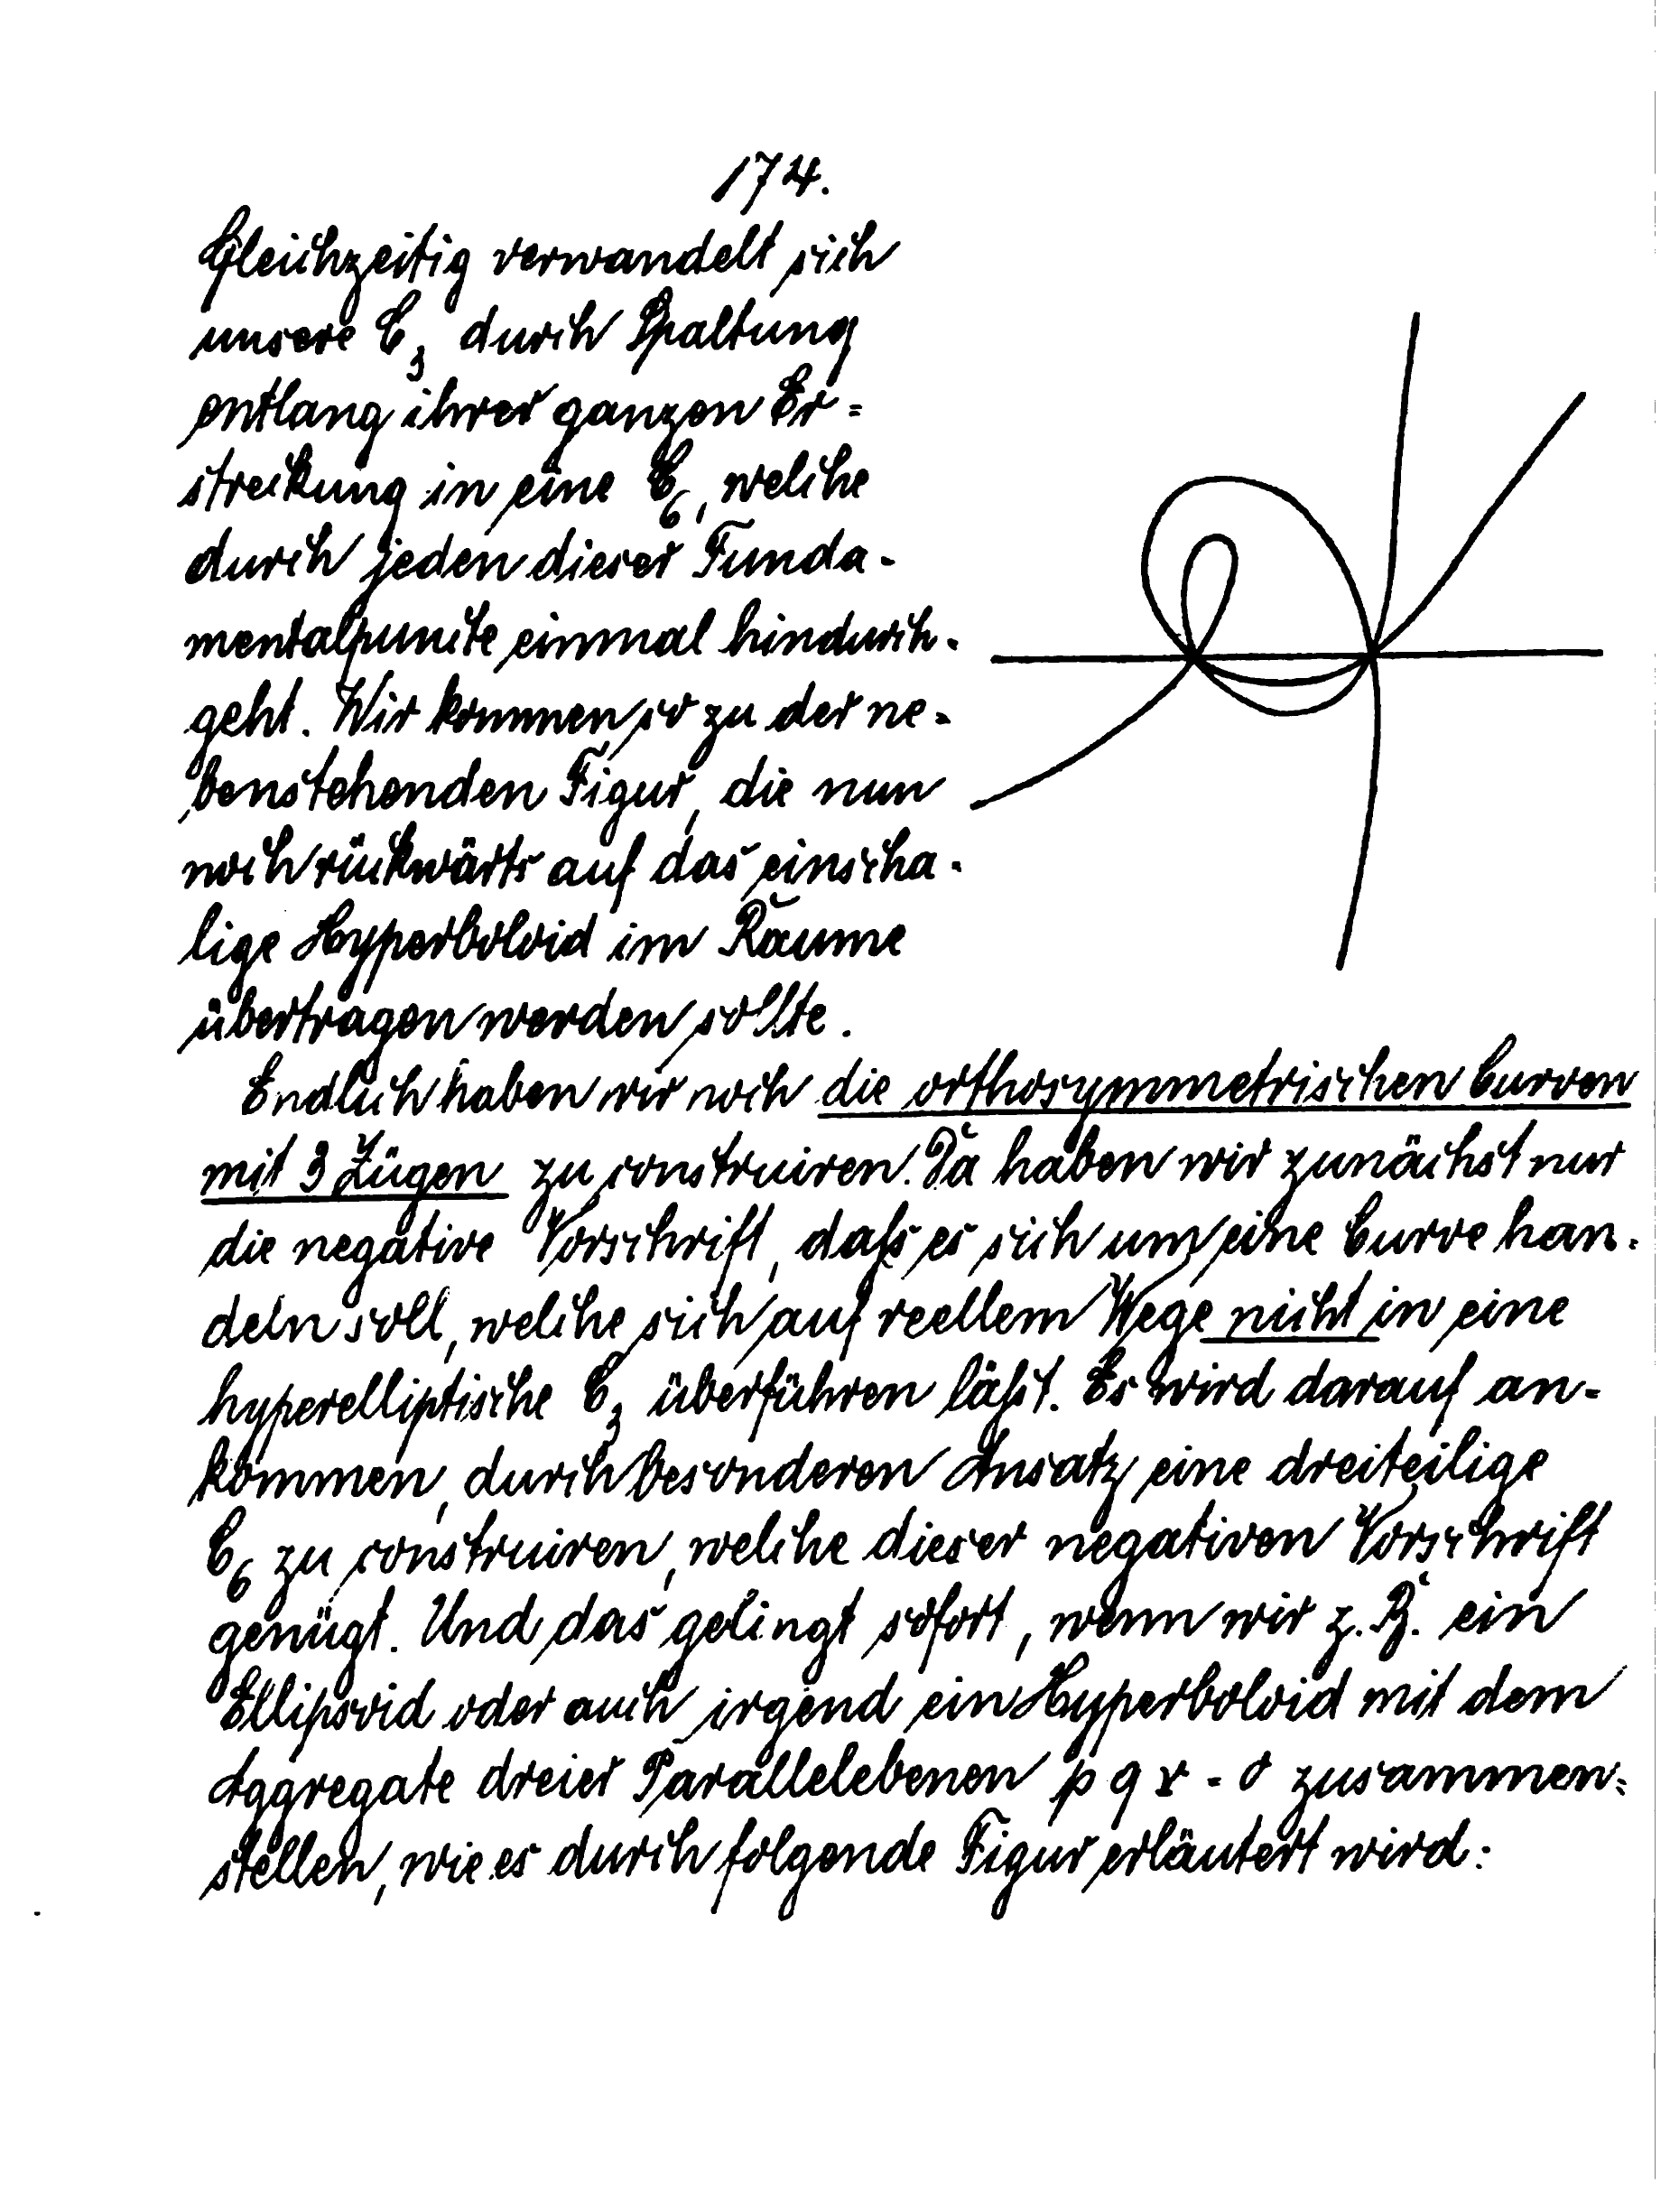 174.
Gleichzeitig verwandelt sich
unsere C₃ durch Spaltung
entlang ihrer ganzen Er=
streckung in eine C₆, welche
durch jeden dieser Funda-
mentalpunkte einmal hindurch-
geht. Wir kommen so zu der ne-
benstehenden Figur, die nun
noch rückwärts auf das einscha-
lige Hyperboloid im Raume
übertragen werden sollte.
Endlich haben wir noch die orthosymmetrischen Curven
mit 3 Zügen zu construiren. Da haben wir zunächst nur
die negative Vorschrift, dafs es sich um eine Curve han-
deln soll, welche sich auf reellem Wege nicht in eine
hyperelliptische C₃ überführen läfst. Es wird darauf an-
kommen, durch besonderen Ansatz eine dreiteilige
C₆ zu construiren, welche dieser negativen Vorschrift
genügt. Und das gelingt sofort, wenn wir z. B. ein
Ellipsoid oder auch irgend ein Hyperboloid mit dem
Aggregate dreier Parallelebenen p q r = 0 zusammen=
stellen, wie es durch folgende Figur erläutert wird: